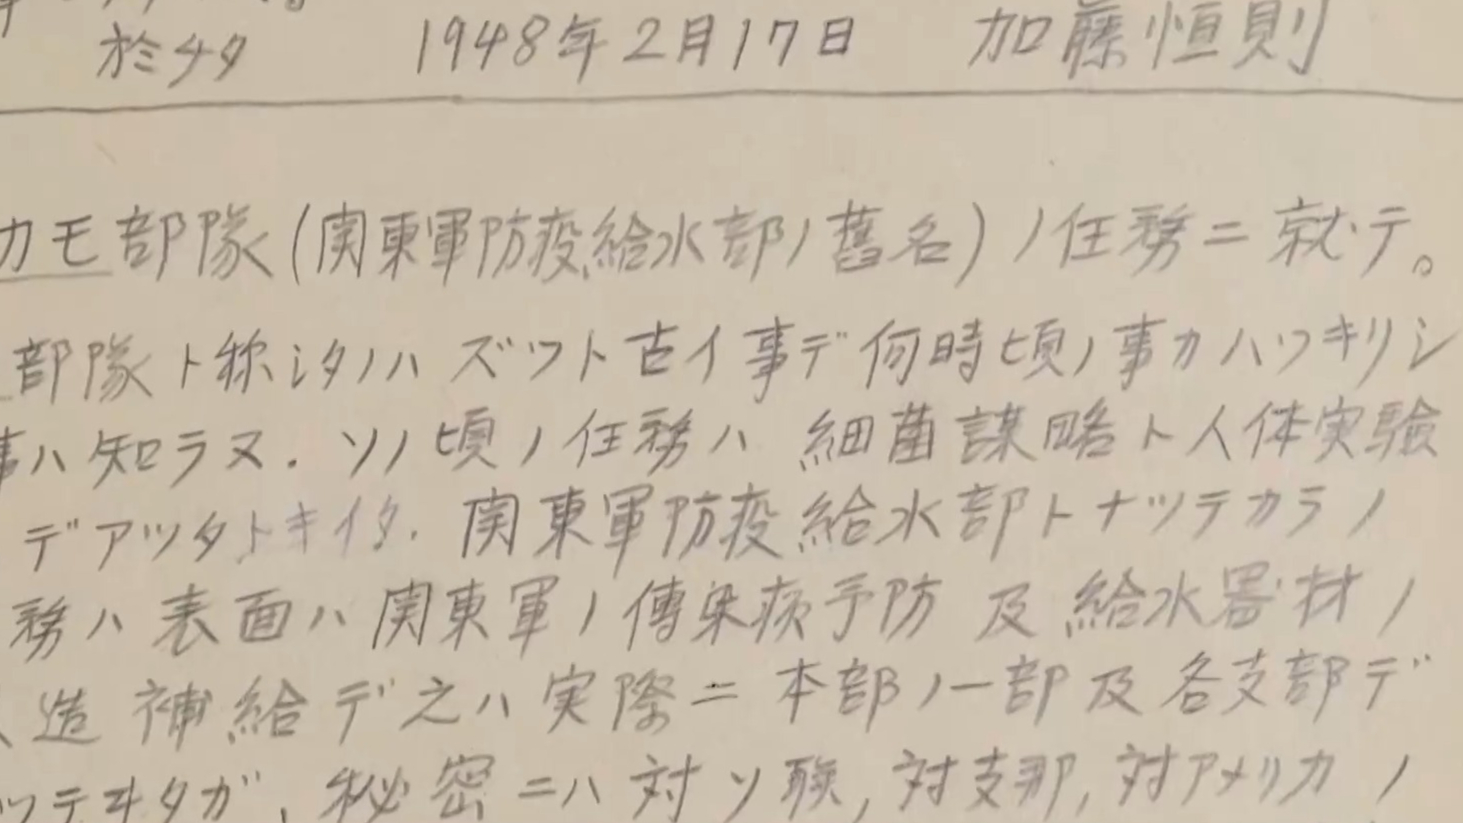 於チタ 1948年2月17日 加藤恒則
カモ部隊(関東軍防疫給水部ノ舊名)ノ任務ニ就テ。
部隊ト称シタノハズツト古イ事デ何時頃ノ事カハツキリシ
事ハ知ラヌ. ソノ頃ノ任務ハ細菌謀略ト人体実験
デアツタトキイタ. 関東軍防疫給水部トナツテカラノ
務ハ表面ハ関東軍ノ傳染病予防及給水器材ノ
造補給デ之ハ実際ニ本部ノ一部及各支部デ
ツテヰタガ, 秘密ニハ対ソ聯, 対支那, 対アメリカノ